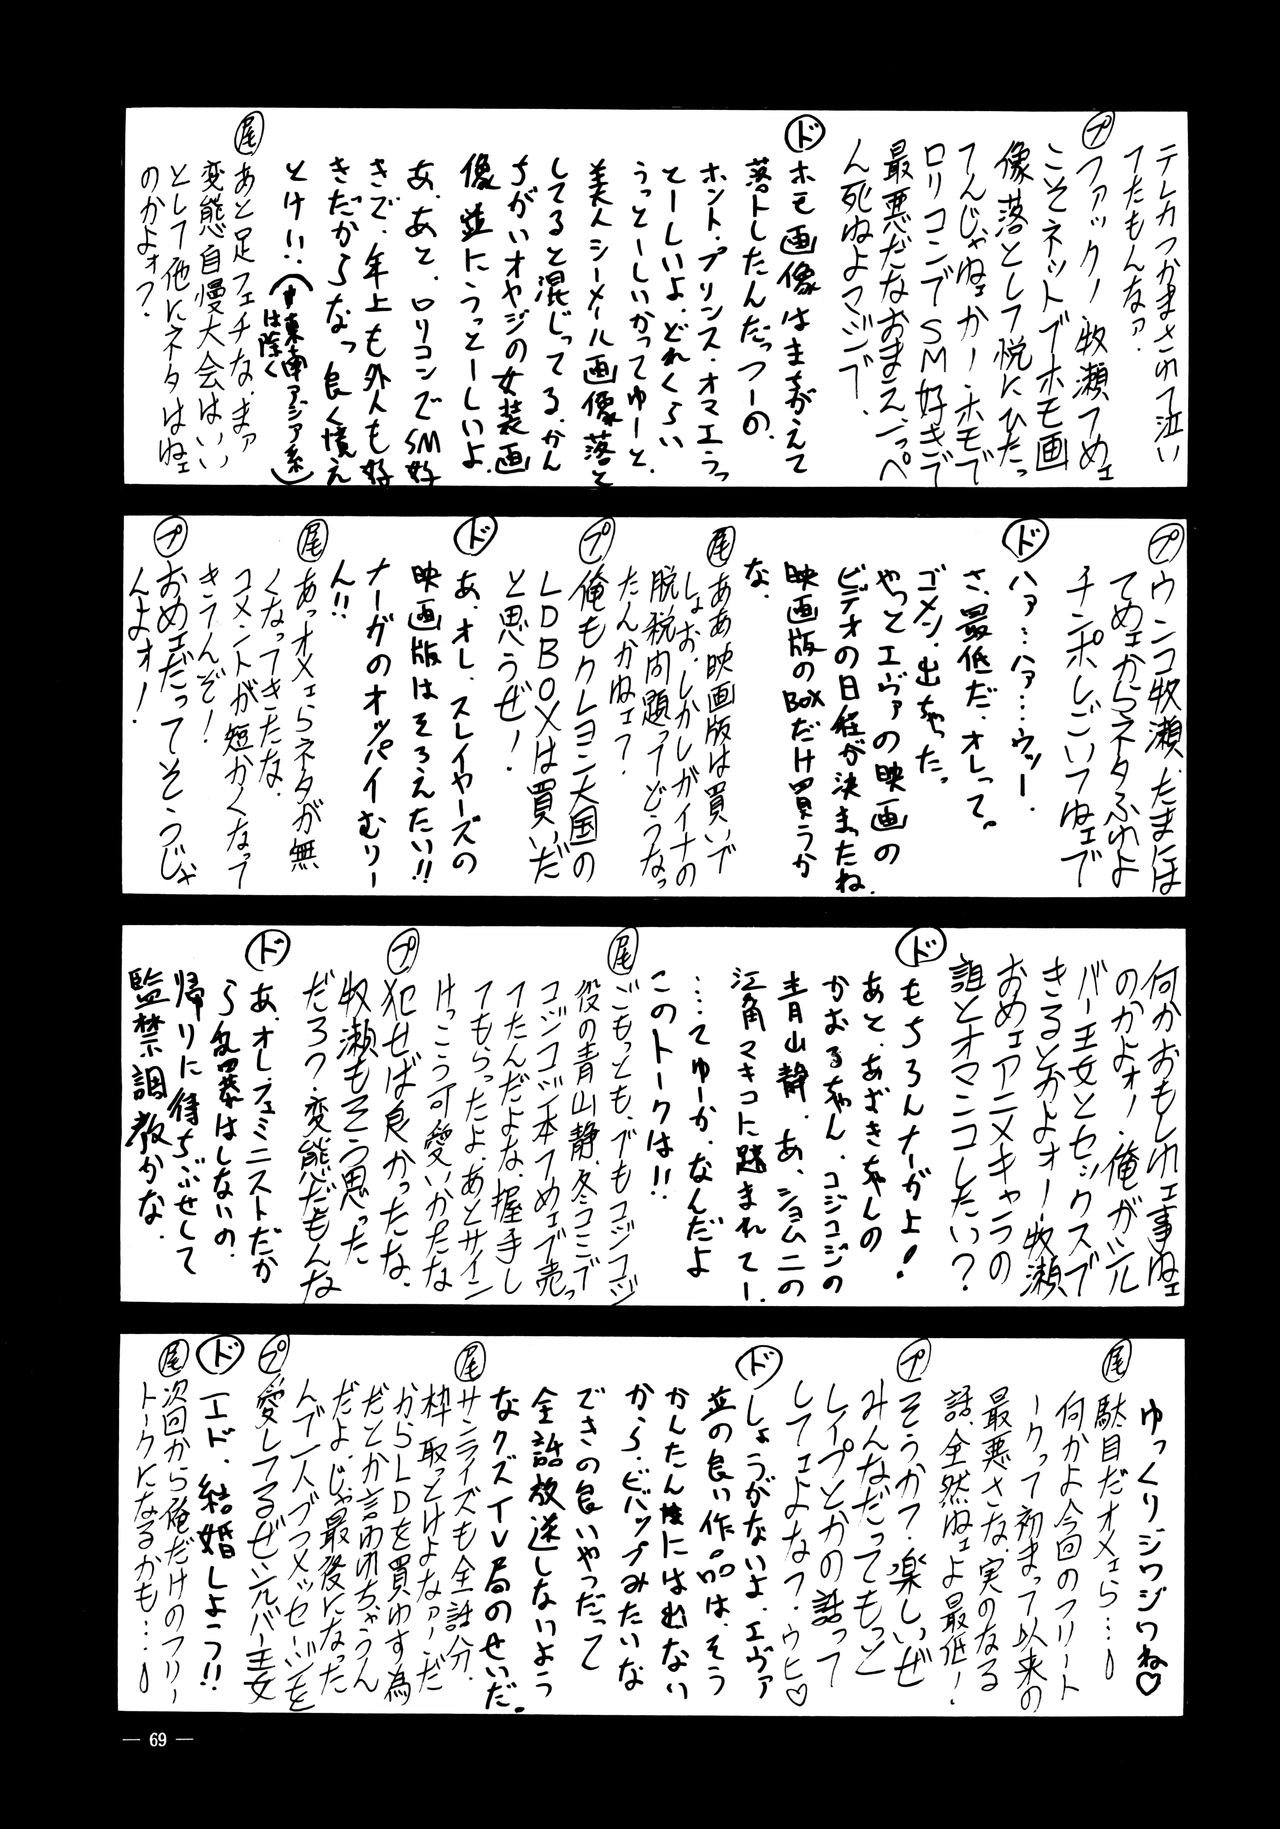 テレカつかまされて泣い
てたもんなァ.
プ ファック!牧瀬てめェ
こそネットでホモ画
像落として悦にひたっ
てんじゃねェかー.ホモで
ロリコンでSM好きで
最悪だなおまえ.いっぺ
ん死ねよマジで.
ド ホモ画像はまちがえて
落トしたんだっつーの.
ホント.プリンス.オマエうっ
とーしいよ.どれくらい
うっとーしいかってゆーと.
美人シーメール画像落と
してると混じってる.かん
ちがいオヤジの女装画
像並にうっとーしいよ.
あ.あと.ロリコンでSM好
きで.年上も外人も好
きだからなっ良く憶え
とけ!!(東南アジア系
は除く)
尾 あと足フェチな.まァ
変態自慢大会はいい
として他にネタはねェ
のかよォ?.
プ ウンコ牧瀬.たまには
てめェからネタふれよ
チンポしごいてねェで
ド ハァ…ハァ….ウッー.
さ.最低だ.オレって。
ゴメン.出ちゃった
やっとエヴァの映画の
ビデオの日程が決まったね.
映画版のBOXだけ買うか
な.
尾 ああ映画版は買いで
しょお.しかしガイナの
脱税問題ってどうなっ
たんかねェ?
プ 俺もクレヨン大国の
LDBOXは買いだ
と思うぜ!
ド あ.オレ.スレイヤーズの
映画版はそろえたい!!
ナーガのオッパイむりー
ん!!
尾 あっオメェらネタが無
くなってきたな.
コメントが短かくなって
きてんぞ!
プ おめェだってそうじゃ
んよォ!
何かおもしれェ事ねェ
のかよォ!.俺がシル
バー王女とセックスで
きるとかよォー牧瀬
おめェアニメキャラの
誰とオマンコしたい?
ド もちろんナーガよ!
あと.あずきちゃんの
かおるちゃん.コジコジの
青山静.あ.ショムニの
江角マキコに踏まれてー.
….てゆーか.なんだよ
このトークは!!
尾 ごもっとも.でもコジコジ
役の青山静.冬コミで
コジコジ本てめェで売っ
てたんだよな.握手し
てもらったよ.あとサイン
けっこう可愛いかったな
プ 犯せば良かったな.
牧瀬もそう思った
だろ?.変態だもんな
ド あ.オレ.フェミニストだか
ら乱暴はしないの.
帰りに待ちぶせして
監禁調教かな.
ゆっくりジワジワね♡
尾 駄目だオメェら…。
何かよ今回のフリート
ークって初まって以来の
最悪さな.実のなる
話.全然ねェよ最低!
プ そうか?.楽しいぜ
みんなだってもっと
レイプとかの話って
してェよな?.ウヒ♡
ド しょうがないよ.エヴァ
並の良い作品は.そう
かんたんには出ない
から.ビバップみたいな
できの良いやつだって
全話放送しないよう
なクズTV局のせいだ。
尾 サンライズも全話分.
枠取っとけよなァ.だ
からLDを買わす為
だとか言われちゃうん
だよ.じゃ最後になった
んで一人づつメッセージを
プ 愛してるぜシルバー王女
ド 工ド.結婚しよっ!!
尾 次回から俺だけのフリー
トークになるかも….。
— 69 —